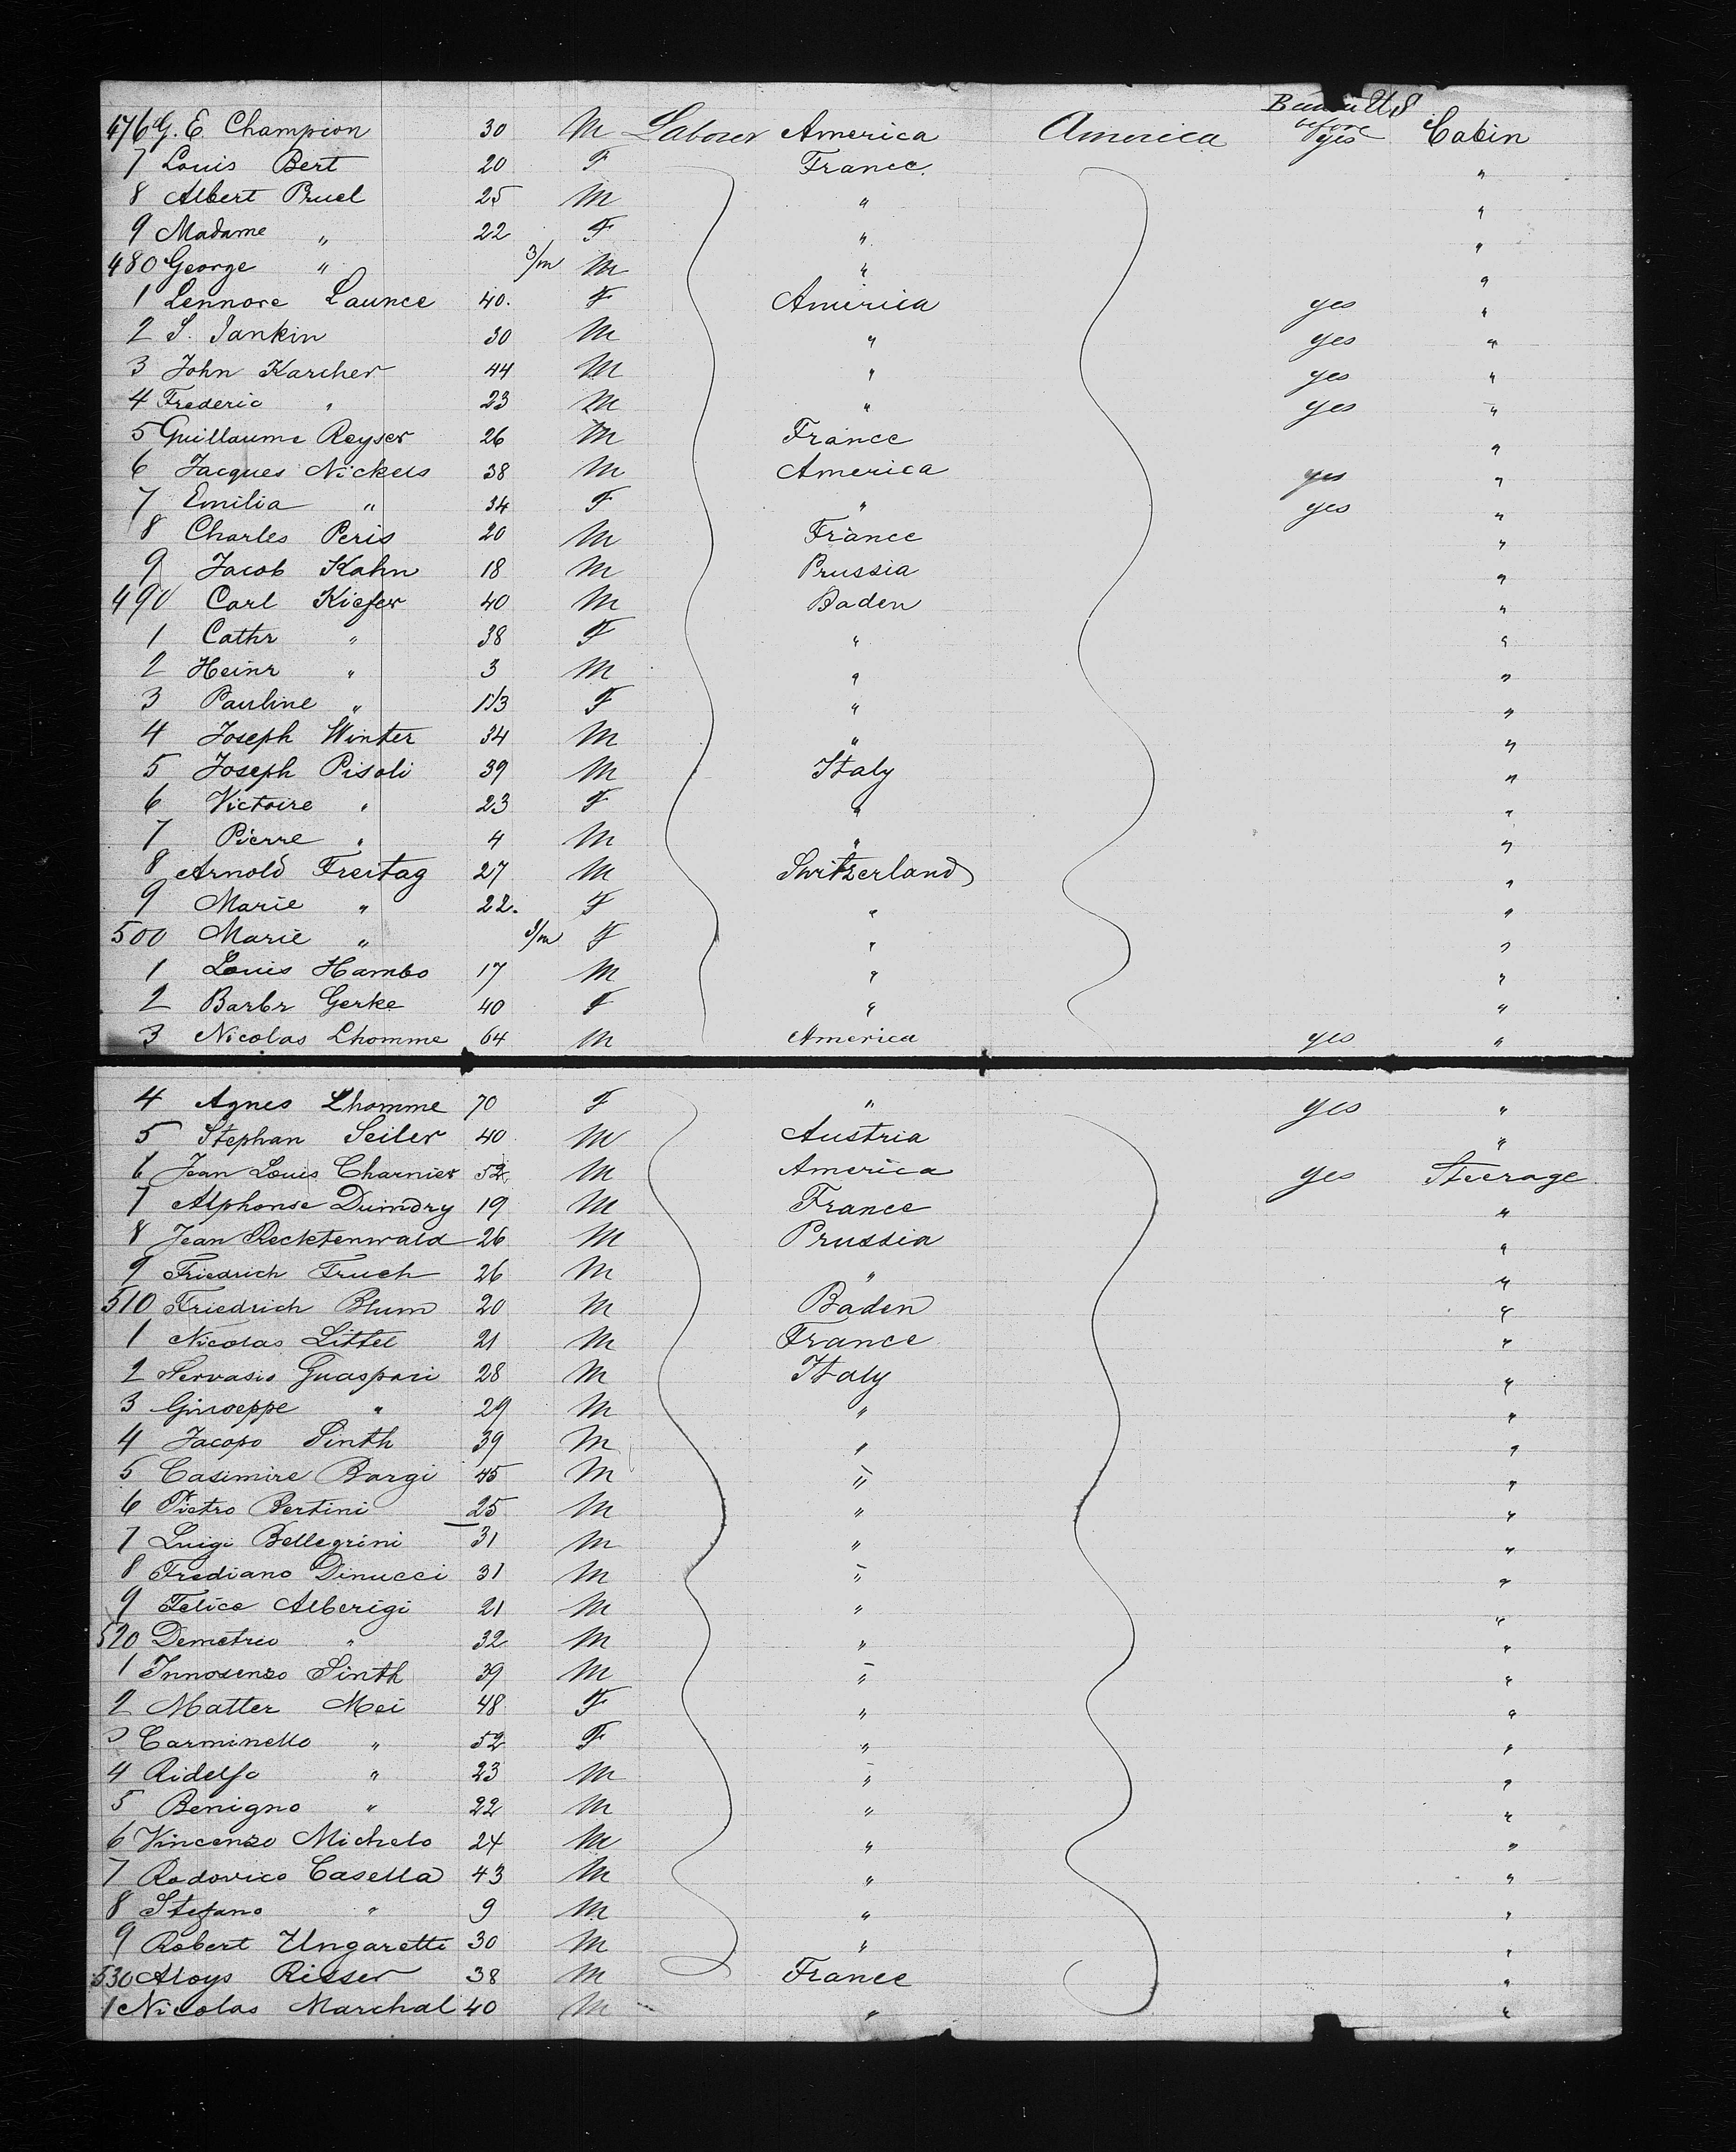 Been in U.S before
476 G. E. Champion 30 M Laborer America America yes Cabin
7 Louis Bert 20 F France "
8 Albert Pruel 25 M " "
9 Madame " 22 F " "
480 George " 3/m M " "
1 Lennore Launce 40. F America yes "
2 S. Jankin 30 M " yes "
3 John Karcher 44 M " yes "
4 Frederic " 23 M " yes "
5 Guillaume Reyser 26 M France "
6 Jacques Nickels 38 M America yes "
7 Emilia " 34 F " yes "
8 Charles Peris 20 M France "
9 Jacob Kahn 18 M Prussia "
490 Carl Kiefer 40 M Baden "
1 Cathr " 38 F " "
2 Heinr " 3 M " "
3 Pauline " 1 1/3 F " "
4 Joseph Winter 34 M " "
5 Joseph Pisoli 39 M Italy "
6 Victoire " 23 F " "
7 Pierre " 4 M " "
8 Arnold Freitag 27 M Switzerland "
9 Marie " 22. F " "
500 Marie " /m F " "
1 Louis Hambo 17 M " "
2 Barbr Gerke 40 F " "
3 Nicolas Lhomme 64 M America yes "
4 Agnes Lhomme 70 F " yes "
5 Stephan Seiler 40 M Austria "
6 Jean Louis Charnier 52 M America yes Steerage
7 Alphonse Dumdry 19 M France "
8 Jean Recktenwald 26 M Prussia "
9 Friedrich Fruch 26 M " "
510 Friedrich Blum 20 M Baden "
1 Nicolas Littel 21 M France "
2 Servasio Guaspari 28 M Italy "
3 Giuseppe " 29 M " "
4 Jacopo Sinth 39 M " "
5 Casimire Bargi 45 M " "
6 Pietro Bertini 25 M " "
7 Luigi Bellegrini 31 M " "
8 Frediano Dinucci 31 M " "
9 Felice Alberigi 21 M " "
520 Demetrio " 32 M " "
1 Innosenso Sinth 39 M " "
2 Matter Mei 48 F " "
3 Carminello " 52 F " "
4 Ridelfo " 23 M " "
5 Benigno " 22 M " "
6 Vincenzo Michelo 24 M " "
7 Rodovico Casella 43 M " "
8 Stefano " 9 M " "
9 Robert Ungaretti 30 M " "
530 Aloys Risser 38 M France "
1 Nicolas Marchal 40 M " "